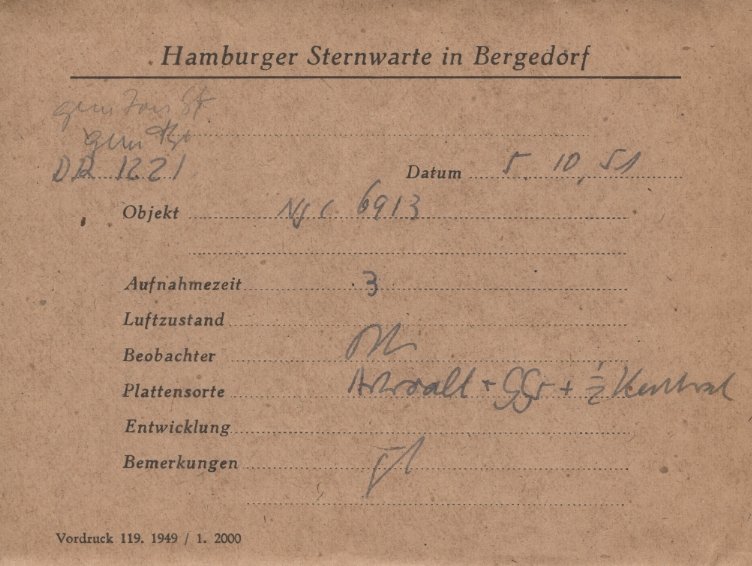 Hamburger Sternwarte in Bergedorf
gem
gem
DR 1221
Datum 5. 10. 51
Objekt Ngc 6913
Aufnahmezeit 3
Luftzustand
Beobachter
Plattensorte + GG5 + 1/2
Entwicklung
Bemerkungen
Vordruck 119. 1949 / 1. 2000